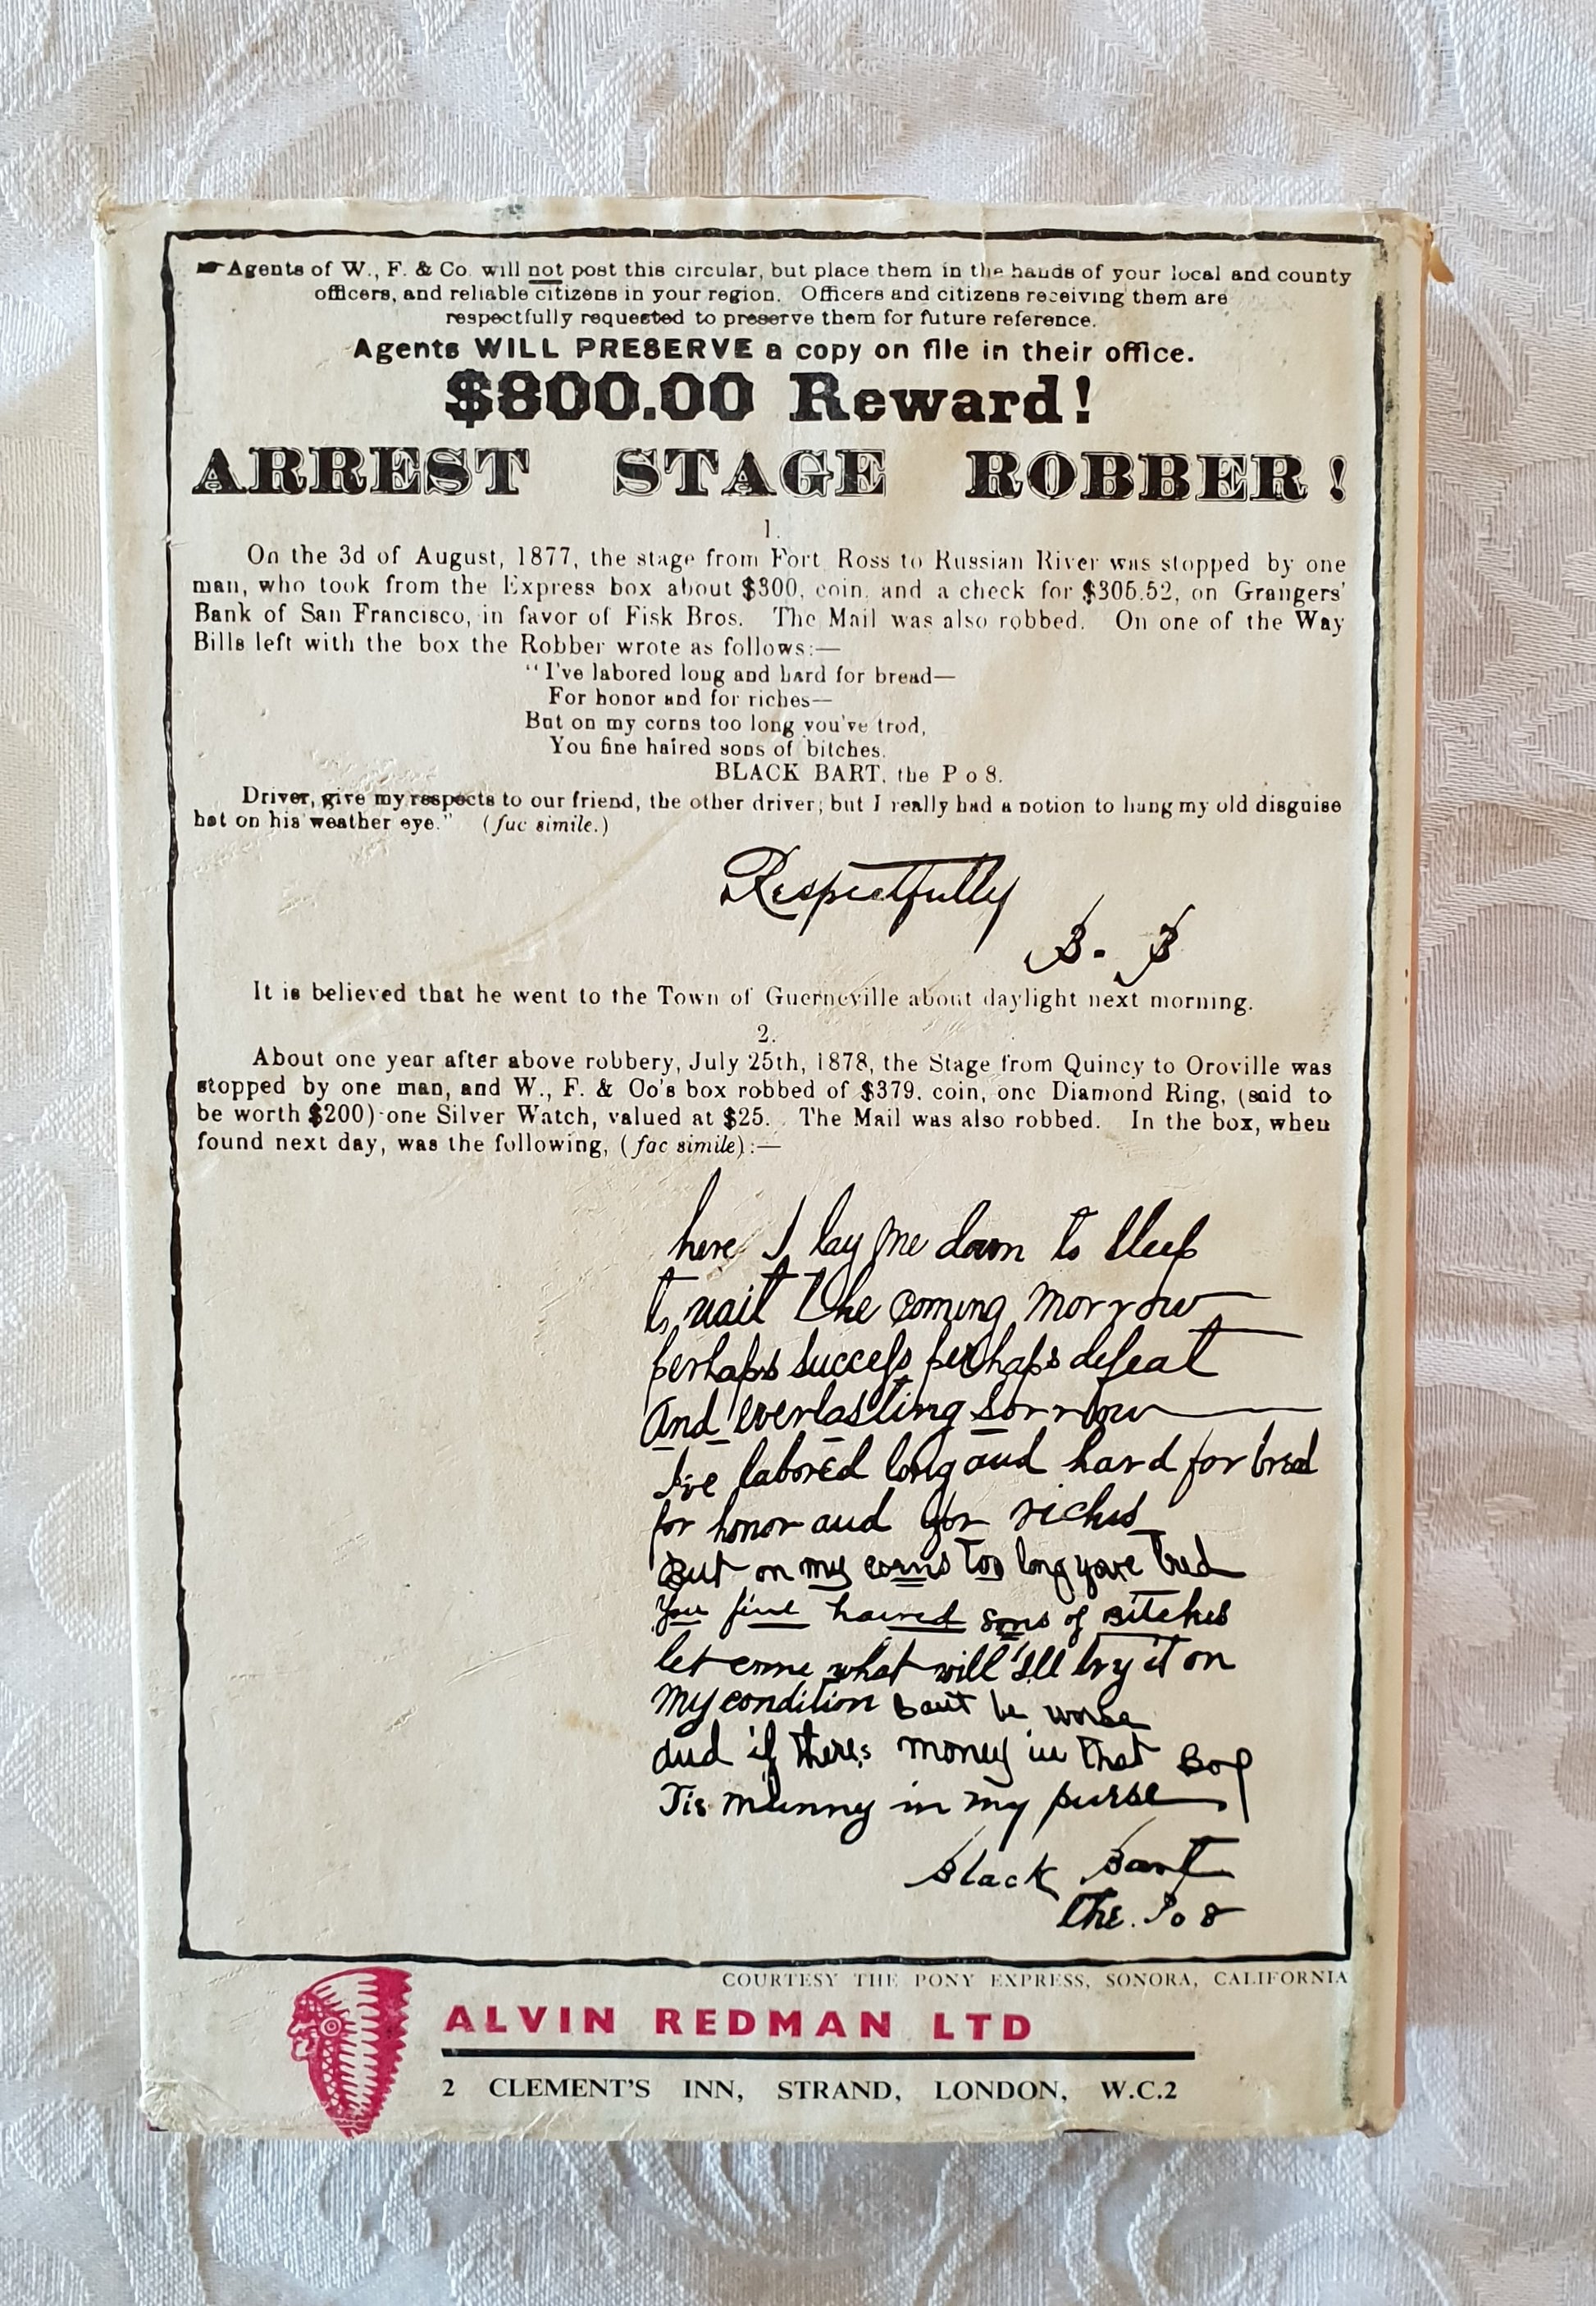 Agents of W., F. & Co. will not post this circular, but place them in the hands of your local and county
officers, and reliable citizens in your region. Officers and citizens receiving them are
respectfully requested to preserve them for future reference.
Agents WILL PRESERVE a copy on file in their office.
$800.00 Reward!
ARREST STAGE ROBBER!
1.
On the 3d of August, 1877, the stage from Fort Ross to Russian River was stopped by one
man, who took from the Express box about $300, coin, and a check for $305.52, on Grangers'
Bank of San Francisco, in favor of Fisk Bros. The Mail was also robbed. On one of the Way
Bills left with the box the Robber wrote as follows:—
"I've labored long and hard for bread—
For honor and for riches—
But on my corns too long you've trod,
You fine haired sons of bitches.
BLACK BART, the P o 8.
Driver, give my respects to our friend, the other driver; but I really had a notion to hang my old disguise
hat on his weather eye." (fac simile.)
Respectfully
B. B
It is believed that he went to the Town of Guerneville about daylight next morning.
2.
About one year after above robbery, July 25th, 1878, the Stage from Quincy to Oroville was
stopped by one man, and W., F. & Oo's box robbed of $379, coin, one Diamond Ring, (said to
be worth $200) one Silver Watch, valued at $25. The Mail was also robbed. In the box, when
found next day, was the following, (fac simile):—
here I lay me down to Sleep
to wait the coming morrow
perhaps success perhaps defeat
And everlasting sorrow
I've labored long and hard for bred
for honor and for riches
But on my corns too long youve tred
You fine haired sons of Bitches
let come what will I'll try it on
My condition cant be worse
and if theres money in that Box
Tis munny in my purse
Black Bart
the Po 8
COURTESY THE PONY EXPRESS, SONORA, CALIFORNIA
ALVIN REDMAN LTD
2 CLEMENT'S INN, STRAND, LONDON, W.C.2